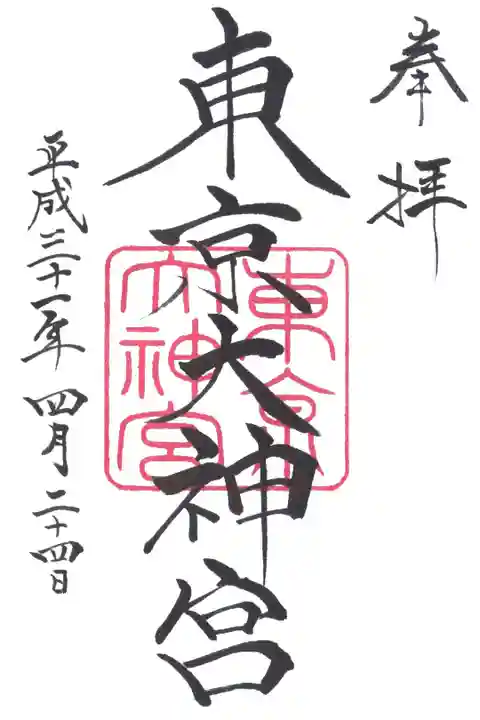 奉拝
東京大神宮
東京大神宮
平成三十一年四月二十四日